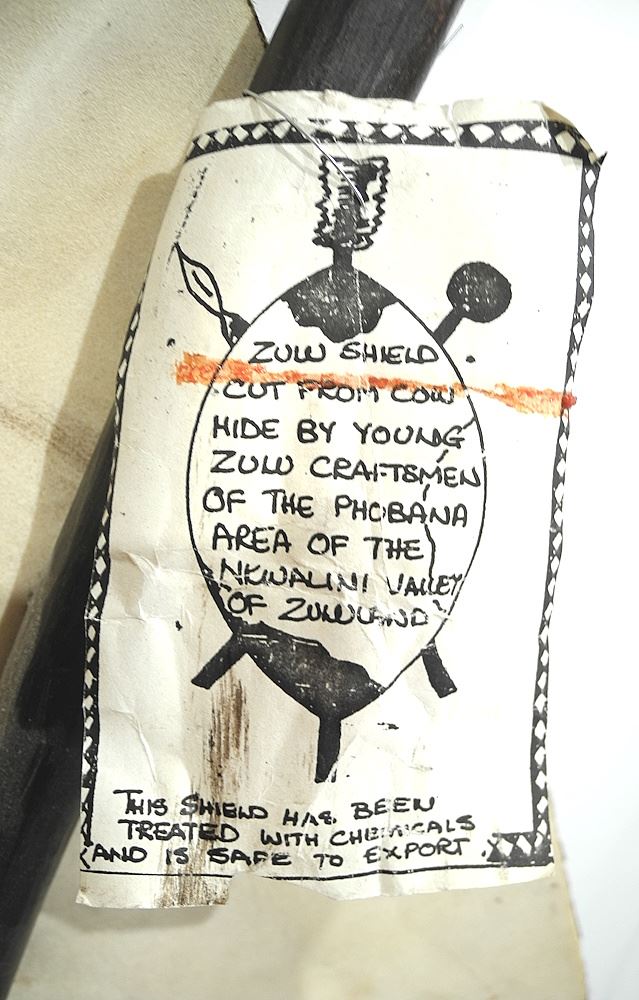 ZULU SHIELD
CUT FROM COW
HIDE BY YOUNG
ZULU CRAFTSMEN
OF THE PHOBANA
AREA OF THE
NKWALINI VALLEY
OF ZULULAND
THIS SHIELD HAS BEEN
TREATED WITH CHEMICALS
AND IS SAFE TO EXPORT.